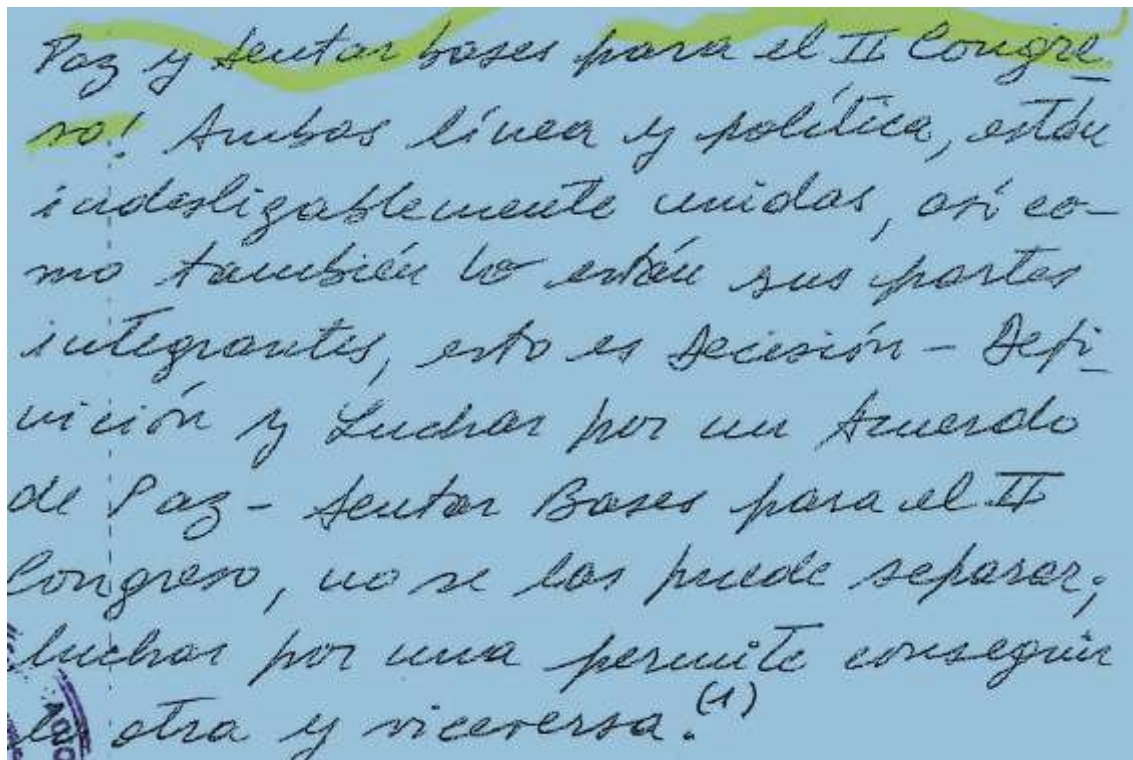 Paz y sentar bases para el II Congre-
so! Ambas línea y política, están
indesligablemente unidas, así co-
mo también lo están sus partes
integrantes, esto es Decisión - Defi-
nición y Luchar por un Acuerdo
de Paz - Sentar Bases para el II
Congreso, no se las puede separar;
luchar por una permite conseguir
la otra y viceversa.(1)